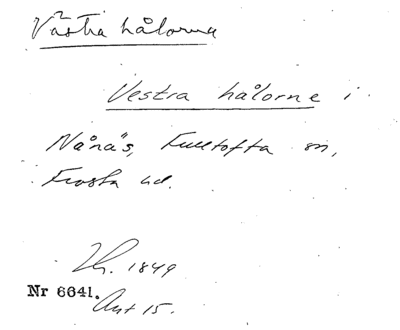 Västra hålorna
Vestra hålorne i
Nånäs, Fulltofta sn,
Frosta hd.
1849
Nr 6641.
Akt 15.